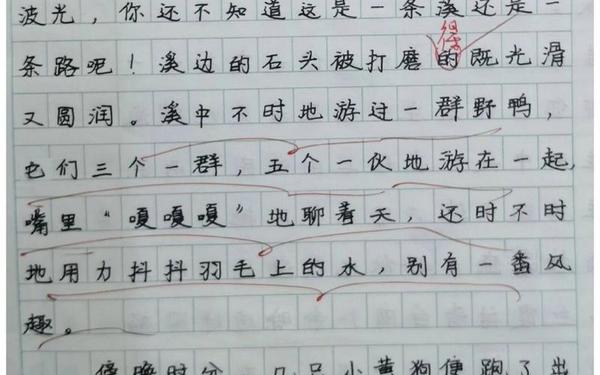 波光，你还不知道这是一条溪还是一
得
条路呢！溪边的石头被打磨的既光滑
又圆润。溪中不时地游过一群野鸭，
它们三个一群，五个一伙地游在一起，
嘴里“嘎嘎嘎”地聊着天，还时不时
地用力抖抖羽毛上的水，别有一番风
趣。
傍晚时分，几只小黄狗便跑了出